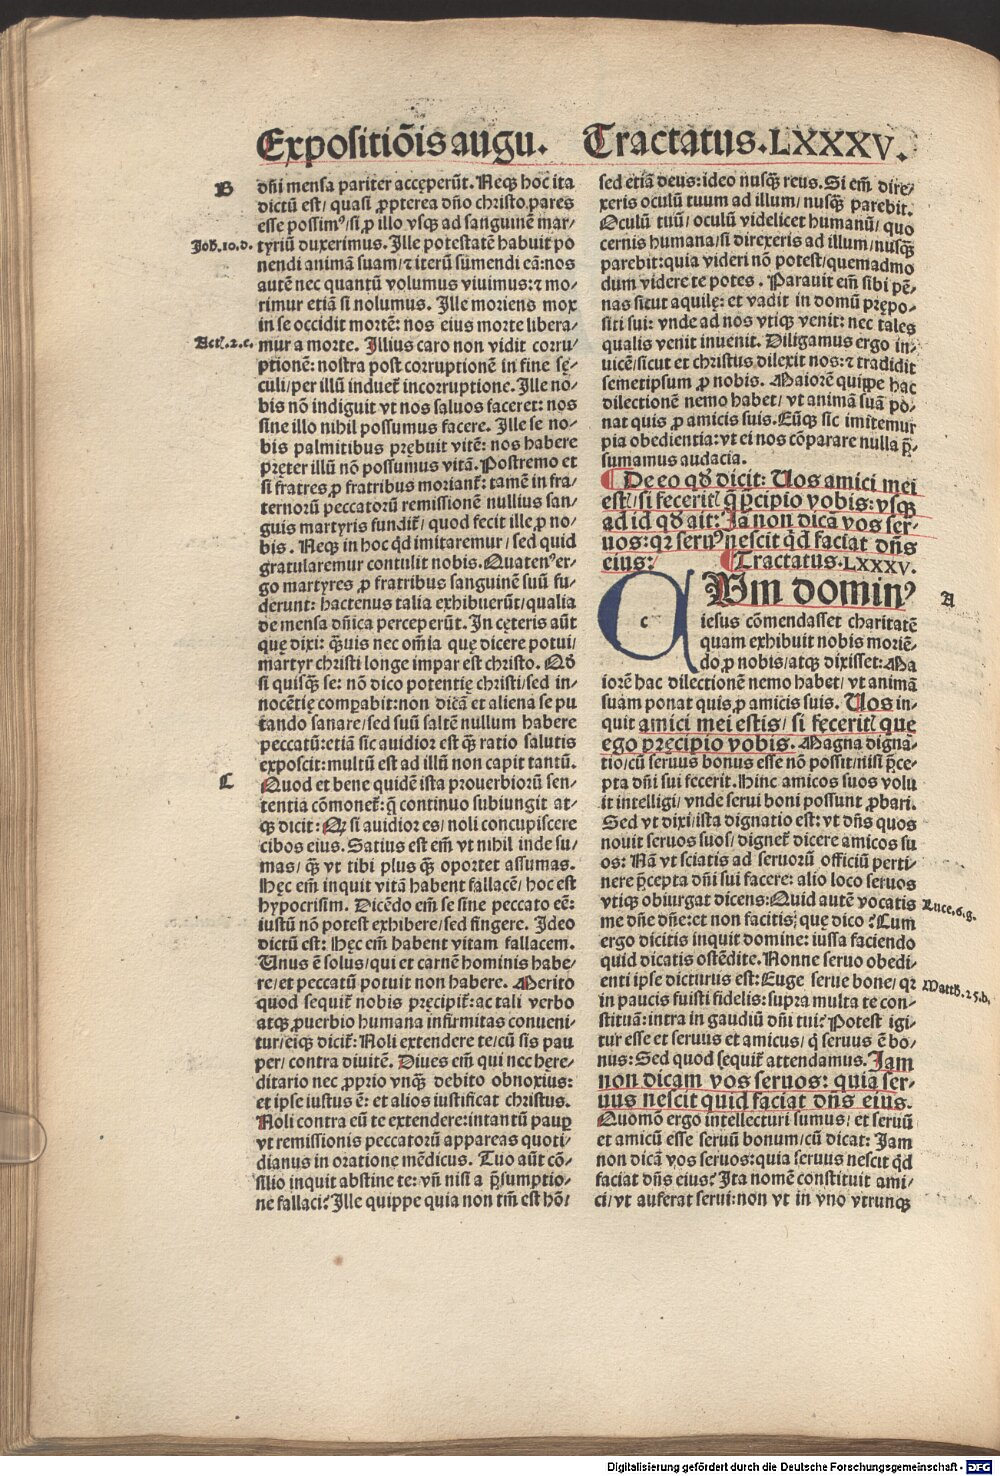 Expositiōis augu. Tractatus. LXXXV.
B
dn̄i mensa pariter accęperūt. Neqꝫ hoc ita
dictū est/ quasi ꝓpterea dn̄o christo pares
esse possimꝰ/ si ꝓ illo vsqꝫ ad sanguinē mar/
Joh. 10. d.
tyriū duxerimus. Ille potestatē habuit po
nendi animā suam/ ⁊ iterū sumendi eā: nos
autē nec quantū volumus viuimus: ⁊ mo/
rimur etiā si nolumus. Ille moriens mox
in se occidit mortē: nos eius morte libera/
Act. 2. c.
mur a morte. Illius caro non vidit corru/
ptionē: nostra post corruptionē in fine sę/
culi/ per illū induet̄ incorruptione. Ille no/
bis nō indiguit vt nos saluos faceret: nos
sine illo nihil possumus facere. Ille se no/
bis palmitibus prębuit vitē: nos habere
pręter illū nō possumus vitā. Postremo et
si fratres ꝓ fratribus moriant̄: tamē in fra/
ternorū peccatorū remissionē nullius san/
guis martyris fundit̄/ quod fecit ille ꝓ no/
bis. Neqꝫ in hoc qd̄ imitaremur/ sed quid
gratularemur contulit nobis. Quatenꝰ er/
go martyres ꝓ fratribus sanguinē suū fu/
derunt: hactenus talia exhibuerūt/ qualia
de mensa dn̄ica perceperūt. In cęteris aūt
quę dixi: q̄uis nec om̄ia quę dicere potui/
martyr christi longe impar est christo. Qd̄
si quisq̄ se: nō dico potentię christi/ sed in/
nocētię comꝑabit: non dicā et aliena se pu
tando sanare/ sed suū saltē nullum habere
peccatū: etiā sic auidior est q̄ ratio salutis
exposcit: multū est ad illū non capit tantū.
C
Quod et bene quidē ista prouerbiorū sen/
tentia cōmonet̄: q̄ continuo subiungit at/
qꝫ dicit: Qꝫ si auidior es/ noli concupiscere
cibos eius. Satius est em̄ vt nihil inde su/
mas/ q̄ vt tibi plus q̄ oportet assumas.
Hęc em̄ inquit vitā habent fallacē/ hoc est
hypocrisim. Dicēdo em̄ se sine peccato eē:
iustū nō potest exhibere/ sed fingere. Ideo
dictū est: Hęc em̄ habent vitam fallacem.
Unus ē solus/ qui et carnē hominis habe/
re/ et peccatū potuit non habere. Merito
quod sequit̄ nobis pręcipit̄: ac tali verbo
atqꝫ ꝓuerbio humana infirmitas conueni/
tur/ eiqꝫ dicit̄: Noli extendere te/ cū sis pau
per/ contra diuitē. Diues em̄ qui nec hęre/
ditario nec ꝓprio vnq̄ debito obnoxius:
et ipse iustus ē: et alios iustificat christus.
Noli contra eū te extendere: intantū pauꝑ
vt remissionis peccatorū appareas quoti/
dianus in oratione mēdicus. Tuo aūt cō/
silio inquit abstine te: vn̄ nisi a p̄sumptio/
ne fallaci? Ille quippe quia non tm̄ est hō/
sed etiā deus: ideo nusq̄ reus. Si em̄ dire/
xeris oculū tuum ad illum/ nusq̄ parebit.
Oculū tuū/ oculū videlicet humanū/ quo
cernis humana/ si direxeris ad illum/ nusq̄
parebit: quia videri nō potest/ quemadmo
dum videre te potes. Parauit em̄ sibi pē/
nas sicut aquilę: et vadit in domū prępo/
siti sui: vnde ad nos vtiqꝫ venit: nec tales
qualis venit inuenit. Diligamus ergo in/
uicē/ sicut et christus dilexit nos: ⁊ tradidit
semetipsum ꝓ nobis. Maiorē quippe hac
dilectionē nemo habet/ vt animā suā po/
nat quis ꝓ amicis suis. Eūqꝫ sic imitemur
pia obedientia: vt ei nos cōparare nulla p̄/
sumamus audacia.
¶ De eo qd̄ dicit: Uos amici mei
estꝭ/ si feceritꝭ q̄ p̄cipio vobis: vsqꝫ
ad id qd̄ ait: Jā non dicā vos ser/
uos: qꝛ seruꝰ nescit qd̄ faciat dn̄s
eius: ¶ Tractatus. LXXXV.
c Um dominꝰ
A
iesus cōmendasset charitatē
quam exhibuit nobis moriē/
do ꝓ nobis/ atqꝫ dixisset: Ma
iorē hac dilectionē nemo habet/ vt animā
suam ponat quis ꝓ amicis suis. Uos in/
quit amici mei estis/ si feceritꝭ que
ego pręcipio vobis. Magna digna/
tio/ cū seruus bonus esse nō possit/ nisi p̄ce/
pta dn̄i sui fecerit. Hinc amicos suos volu
it intelligi/ vnde serui boni possunt ꝓbari.
Sed vt dixi/ ista dignatio est: vt dn̄s quos
nouit seruos suos/ dignet̄ dicere amicos su
os: Nā vt sciatis ad seruorū officiū perti/
nere p̄cepta dn̄i sui facere: alio loco seruos
vtiqꝫ obiurgat dicens: Quid autē vocatis
Luce. 6. g.
me dn̄e dn̄e: et non facitis quę dico? Cum
ergo dicitis inquit domine: iussa faciendo
quid dicatis ostēdite. Nonne seruo obedi/
enti ipse dicturus est: Euge serue bone/ qꝛ
Matth. 25. b.
in paucis fuisti fidelis: supra multa te con/
stituā: intra in gaudiū dn̄i tui? Potest igi/
tur esse et seruus et amicus/ q̄ seruus ē bo/
nus: Sed quod sequit̄ attendamus. Jam
non dicam vos seruos: quia ser/
uus nescit quid faciat dn̄s eius.
Quomō ergo intellecturi sumus/ et seruū
et amicū esse seruū bonum/ cū dicat: Jam
non dicā vos seruos: quia seruus nescit qd̄
faciat dn̄s eius? Ita nomē constituit ami/
ci/ vt auferat serui: non vt in vno vtrunqꝫ
Digitalisierung gefördert durch die Deutsche Forschungsgemeinschaft - DFG